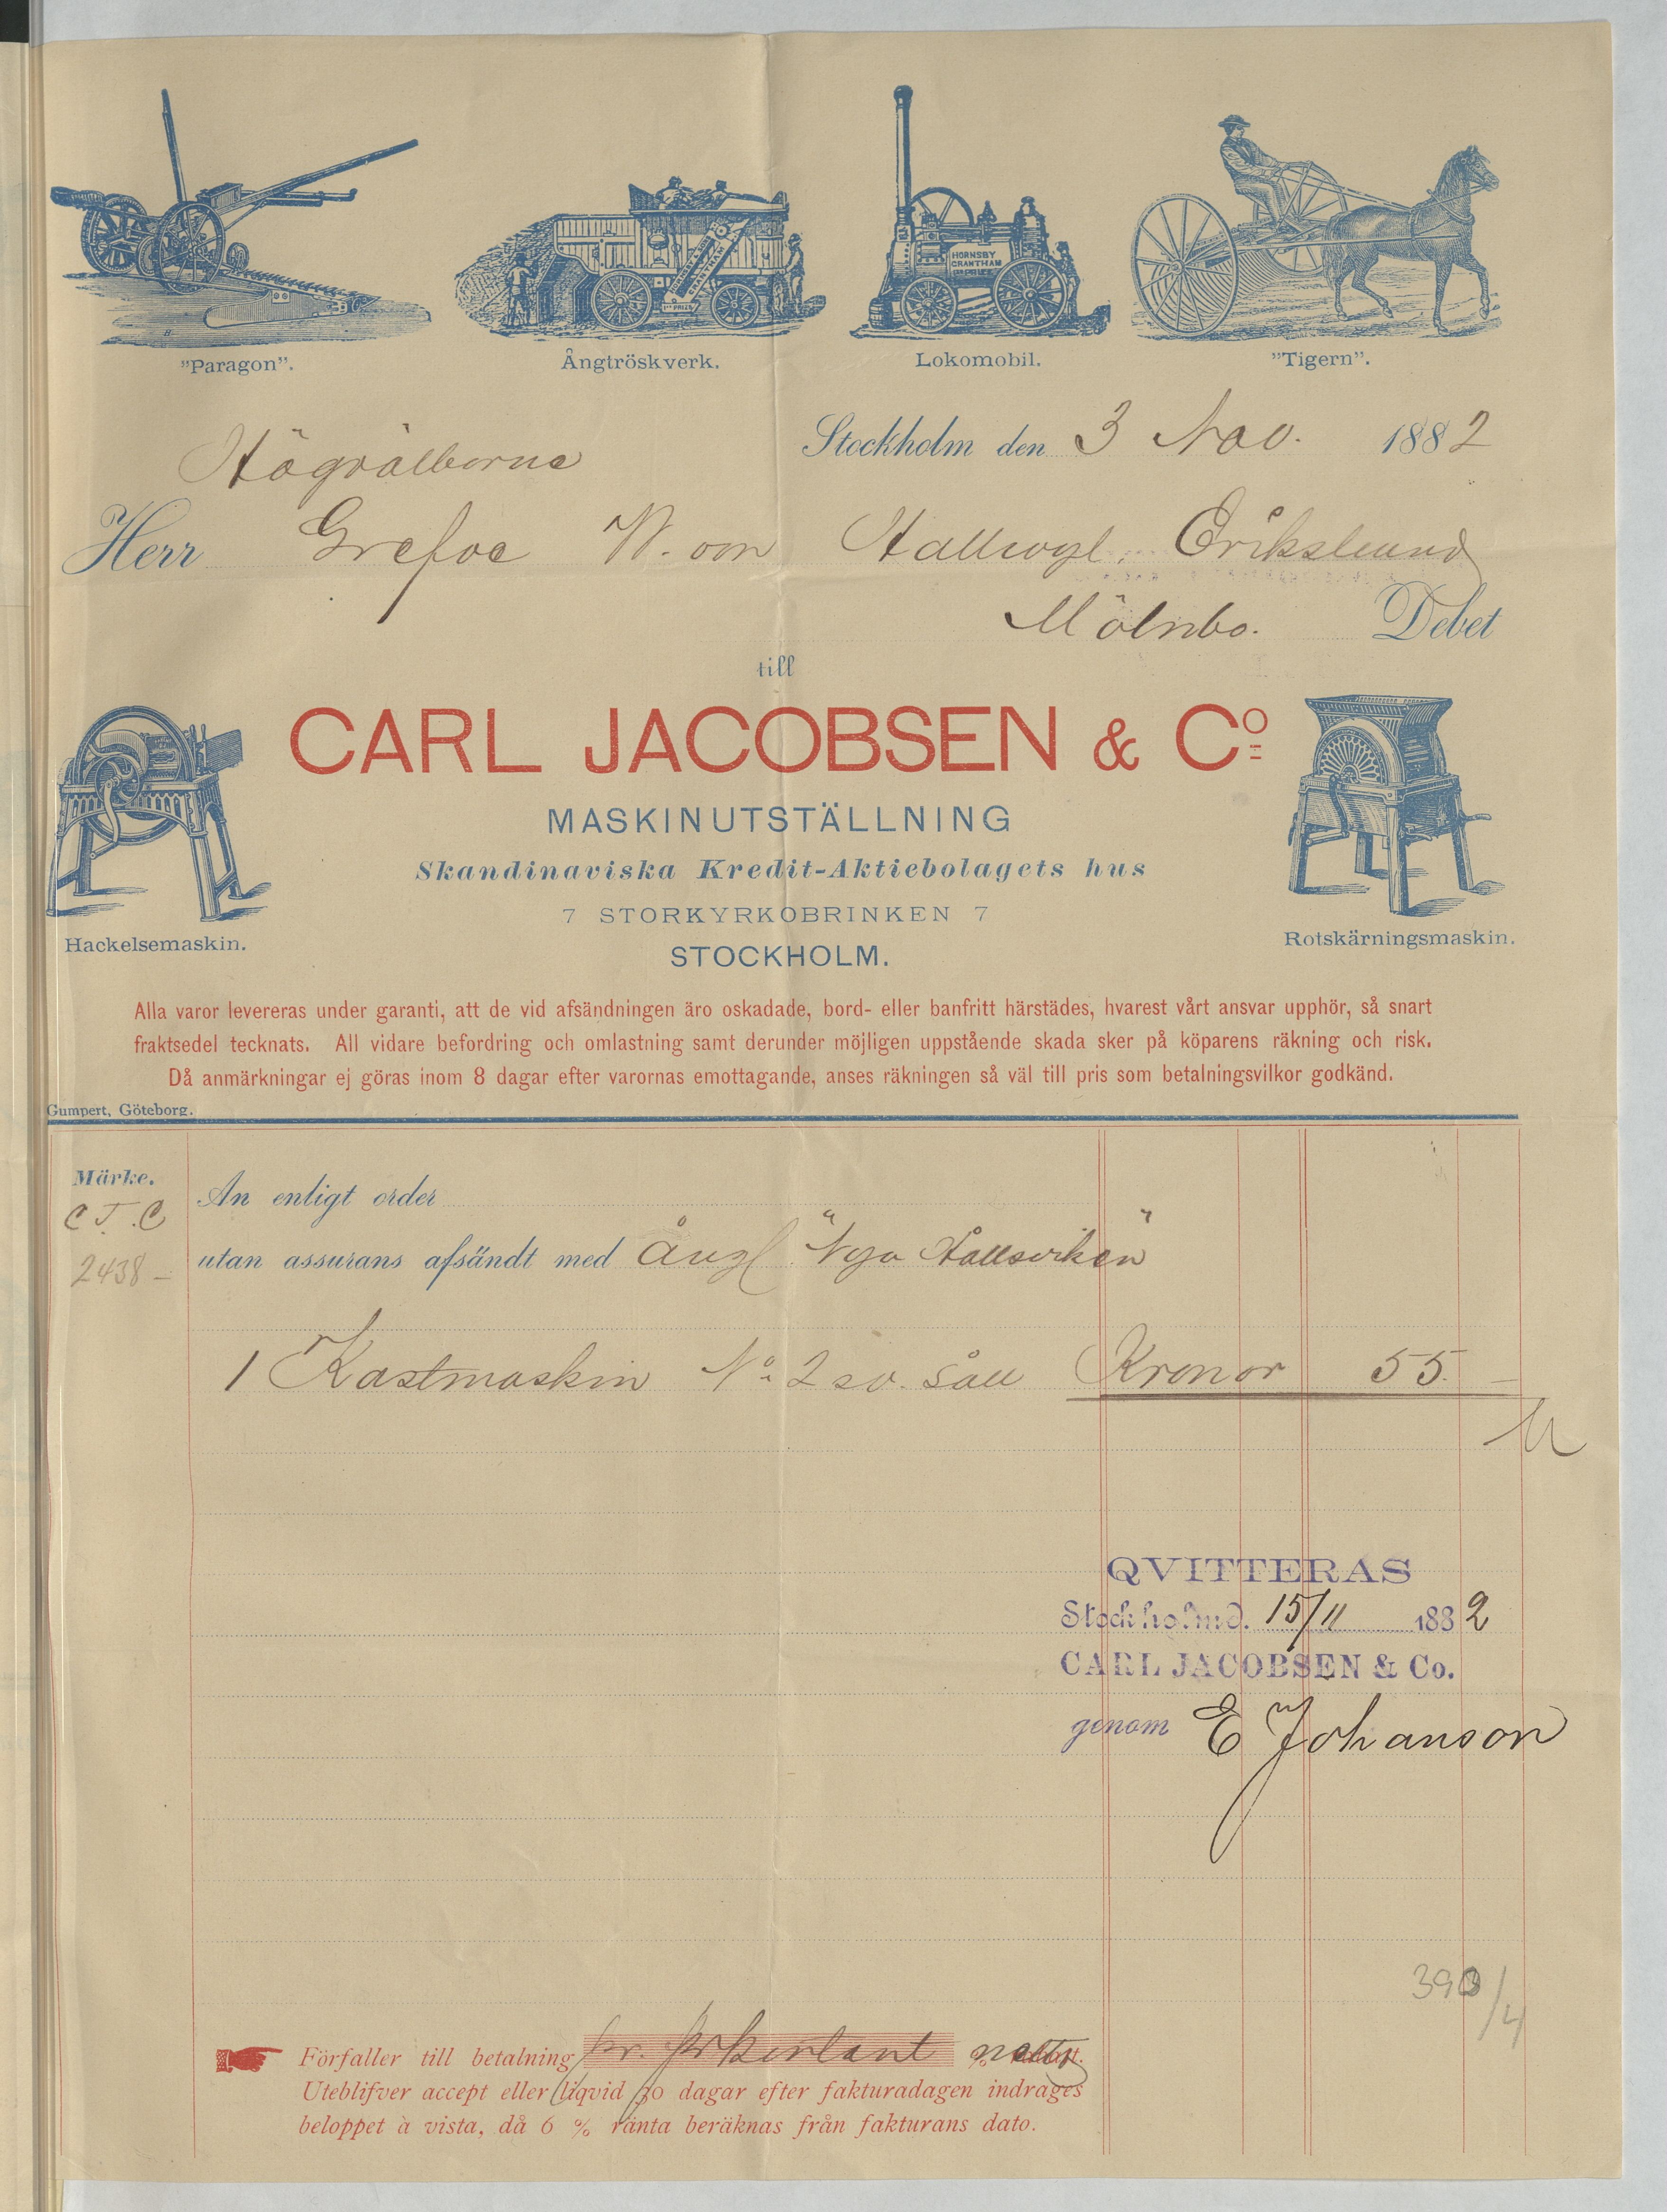 HORNSBY
GRANTHAM
"Paragon".
Ångtröskverk.
Lokomobil.
"Tigern".
Stockholm den 3 Nov. 1882
Högvälborne
Herr Grefve W. von Hallwyl. Erikslund
Mölnbo. Debet
till
CARL JACOBSEN & Co
MASKINUTSTÄLLNING
Skandinaviska Kredit-Aktiebolagets hus
7 STORKYRKOBRINKEN 7
STOCKHOLM.
Hackelsemaskin.
Rotskärningsmaskin.
Alla varor levereras under garanti, att de vid afsändningen äro oskadade, bord- eller banfritt härstädes, hvarest vårt ansvar upphör, så snart
fraktsedel tecknats. All vidare befordring och omlastning samt derunder möjligen uppstående skada sker på köparens räkning och risk.
Då anmärkningar ej göras inom 8 dagar efter varornas emottagande, anses räkningen så väl till pris som betalningsvilkor godkänd.
Gumpert, Göteborg.
Märke.
C T. C
2438 –
An enligt order
utan assurans afsändt med Ångf "Nya Hallsviken"
1 Kastmaskin No 2 sv. såll Kronor 55. –
QVITTERAS
Stockholm d. 15/11 1882
CARL JACOBSEN & Co.
genom E Johanson
/4
Förfaller till betalning pr. kontant netto
Uteblifver accept eller liqvid 30 dagar efter fakturadagen indrages
beloppet à vista, då 6 % ränta beräknas från fakturans dato.